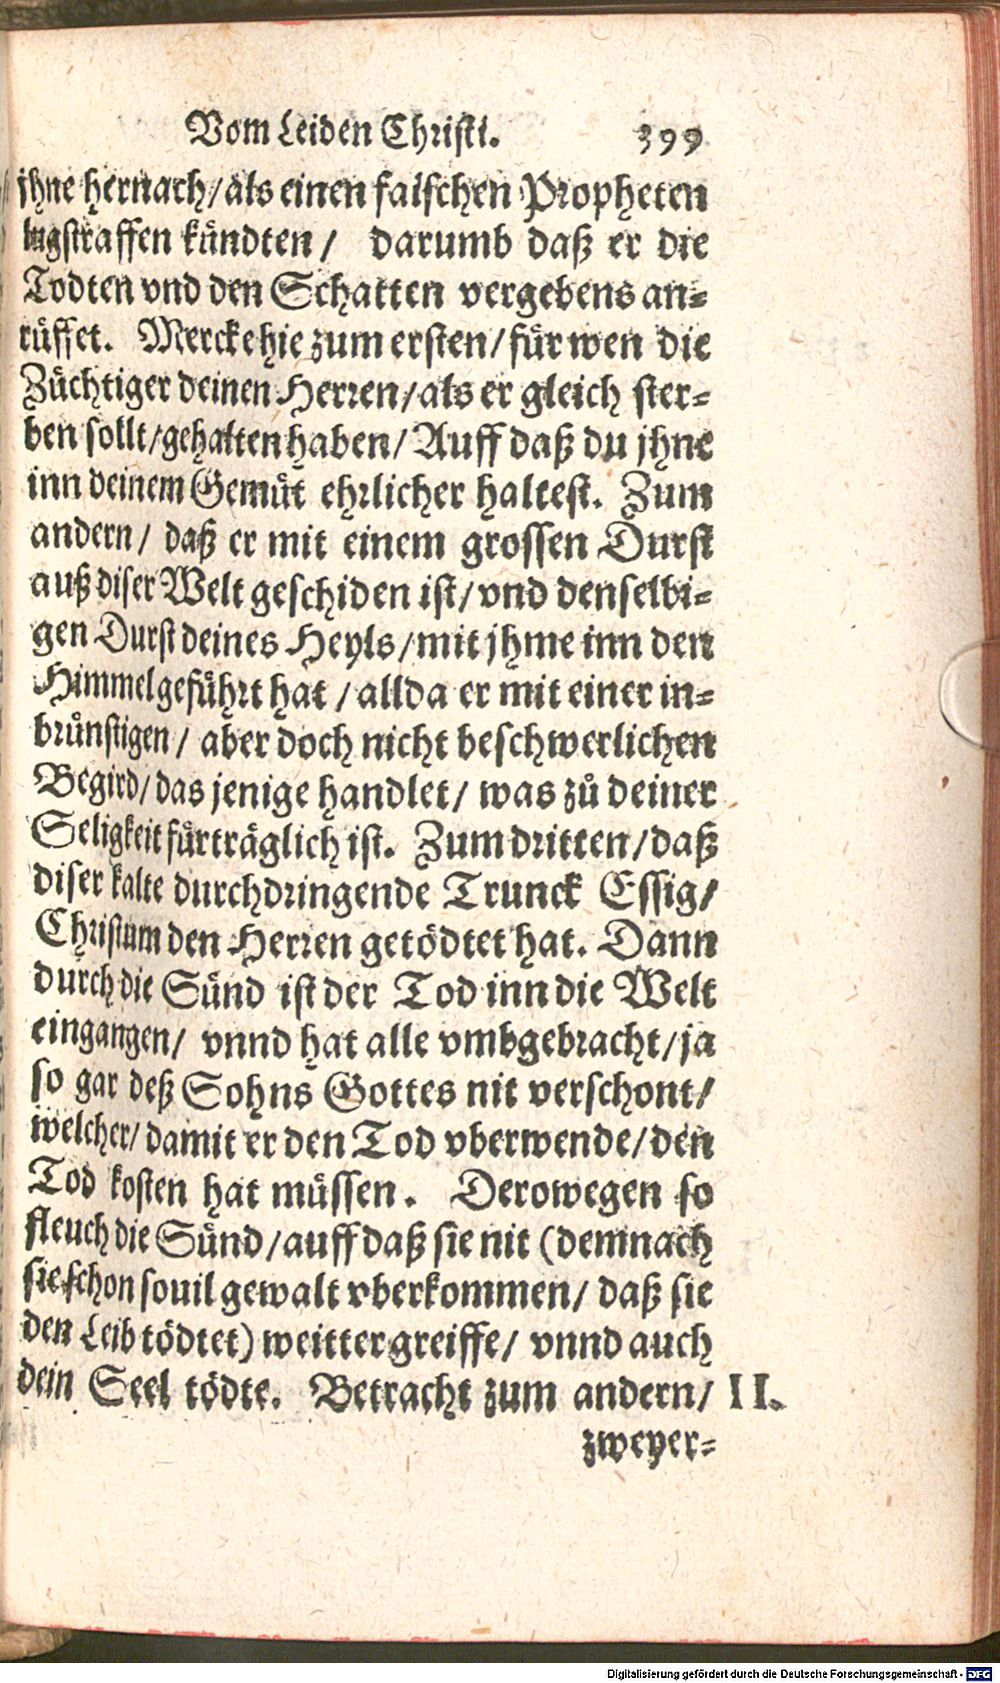 Vom Leiden Christi. 399
jhne hernach/als einen falschen Propheten
lugstraffen kündten/ darumb daß er die
Todten vnd den Schatten vergebens an-
rüffet. Mercke hie zum ersten/für wen die
Züchtiger deinen Herren/als er gleich ster-
ben sollt/gehalten haben/Auff daß du jhne
inn deinem Gemüt ehrlicher haltest. Zum
andern/ daß er mit einem grossen Durst
auß diser Welt geschiden ist/vnd denselbi-
gen Durst deines Heyls/mit jhme inn den
Himmel geführt hat/allda er mit einer in-
brünstigen/ aber doch nicht beschwerlichen
Begird/das jenige handlet/ was zů deiner
Seligkeit fürträglich ist. Zum dritten/daß
diser kalte durchdringende Trunck Essig/
Christum den Herren getödtet hat. Dann
durch die Sünd ist der Tod inn die Welt
eingangen/ vnnd hat alle vmbgebracht/ja
so gar deß Sohns Gottes nit verschont/
welcher/damit er den Tod vberwende/den
Tod kosten hat müssen. Derowegen so
fleuch die Sünd/auff daß sie nit (demnach
sie schon souil gewalt vberkommen/ daß sie
den Leib tödtet) weitter greiffe/ vnnd auch
dein Seel tödte. Betracht zum andern/ II.
zweyer-
Digitalisierung gefördert durch die Deutsche Forschungsgemeinschaft - DFG